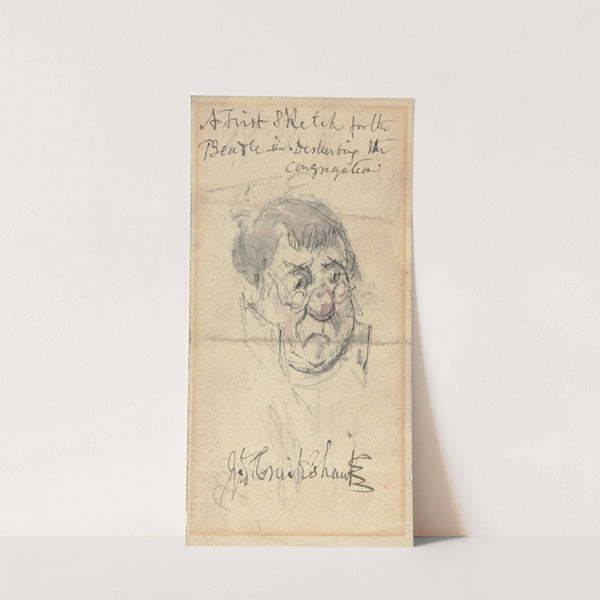 A First Sketch for the
Beadle in Disturbing the
Congregation
Geo Cruikshank